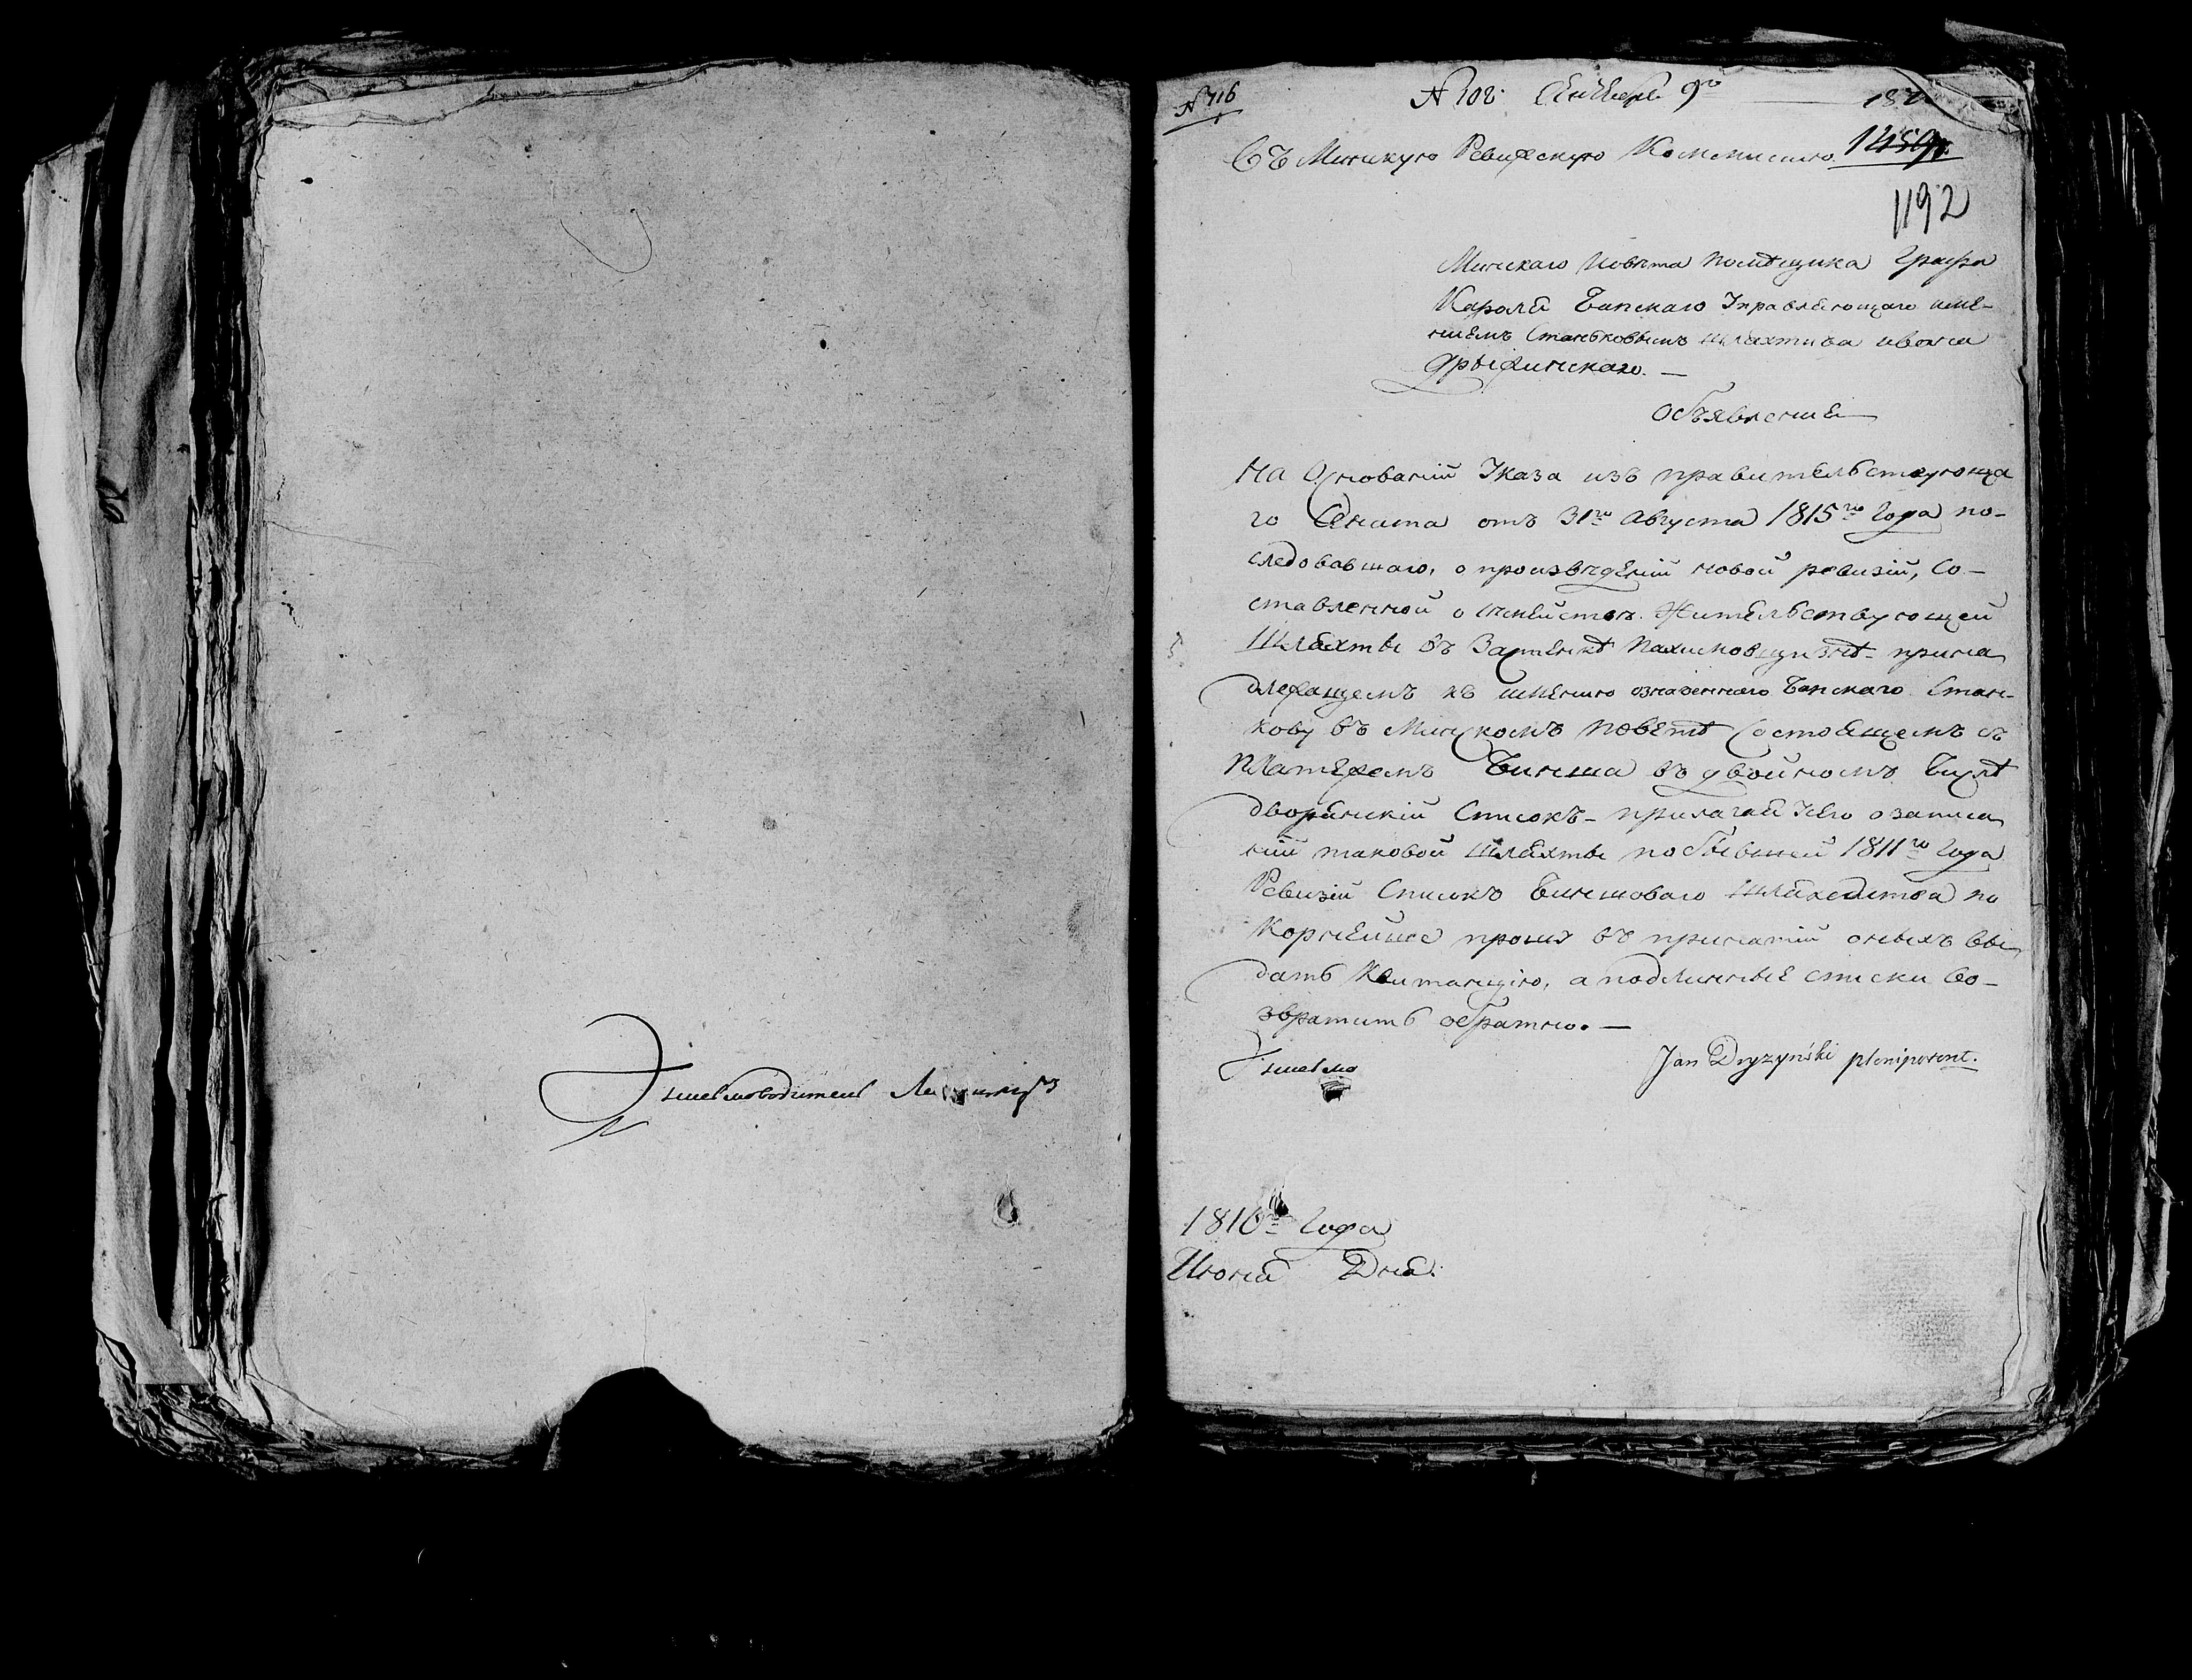 Письмоводитель
№ 716
№ 202. Сентября 9го
Въ Минскую Ревизскую Коммисию. 1459.
1192
Минскаго Повѣта помѣщика Графа
Кароля Чапскаго Управляющаго име-
ниемъ Станьковымъ шляхтича Ивана
Дрыжинскаго. —
Объявление
На Основаніи Указа изъ правительствующа
го Сената отъ 31го Августа 1815го Года по-
следовавшаго, о произвѣденіи новой ревизіи, Со-
ставленной о жительствующей
Шляхты въ Застенкѣ принад
длежащемъ къ имению означеннаго Чапскаго Стань-
кову въ Минскомъ повѣтѣ Состоящемъ съ
платежемъ Чинша въ двойномъ Числѣ
дворянский Списокъ - прилагая Узего о записа
ний таковой Шляхты по бывшей 1811го Года
Ревизіи Списокъ Чиншоваго Шляхедства по
Корнейше прошу въ принятіи оныхъ вы
дать Квитанцію, а подлинные списки во-
звратить обратно. —
Jan Dryzyński plenipotent.
1816го Года
Июня Дня.